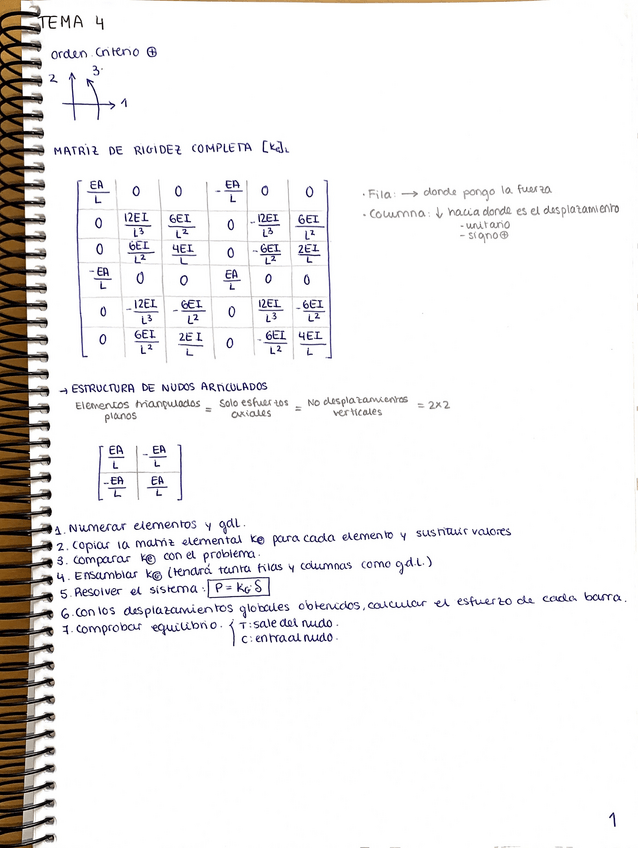 TEMA 4
orden. Criterio ⊕
2 3.
1
MATRIZ DE RIGIDEZ COMPLETA [Ke]L
EA/L 0 0 -EA/L 0 0
0 12EI/L³ 6EI/L² 0 -12EI/L³ 6EI/L²
0 6EI/L² 4EI/L 0 -6EI/L² 2EI/L
-EA/L 0 0 EA/L 0 0
0 -12EI/L³ -6EI/L² 0 12EI/L³ -6EI/L²
0 6EI/L² 2EI/L 0 -6EI/L² 4EI/L
· Fila: → donde pongo la fuerza
· Columna: ↓ hacia donde es el desplazamiento
- unitario
- signo ⊕
→ ESTRUCTURA DE NUDOS ARTICULADOS
Elementos triangulados planos = Solo esfuerzos axiales = No desplazamientos verticales = 2x2
EA/L -EA/L
-EA/L EA/L
1. Numerar elementos y gdl.
2. Copiar la matriz elemental Ke para cada elemento y sustituir valores
3. Comparar Ke con el problema.
4. Ensamblar Ke (tendrá tanta filas y columnas como g.d.l.)
5. Resolver el sistema: P = KG·δ
6. Con los desplazamientos globales obtenidos, calcular el esfuerzo de cada barra.
7. Comprobar equilibrio. { T: sale del nudo.
C: entra al nudo.
1